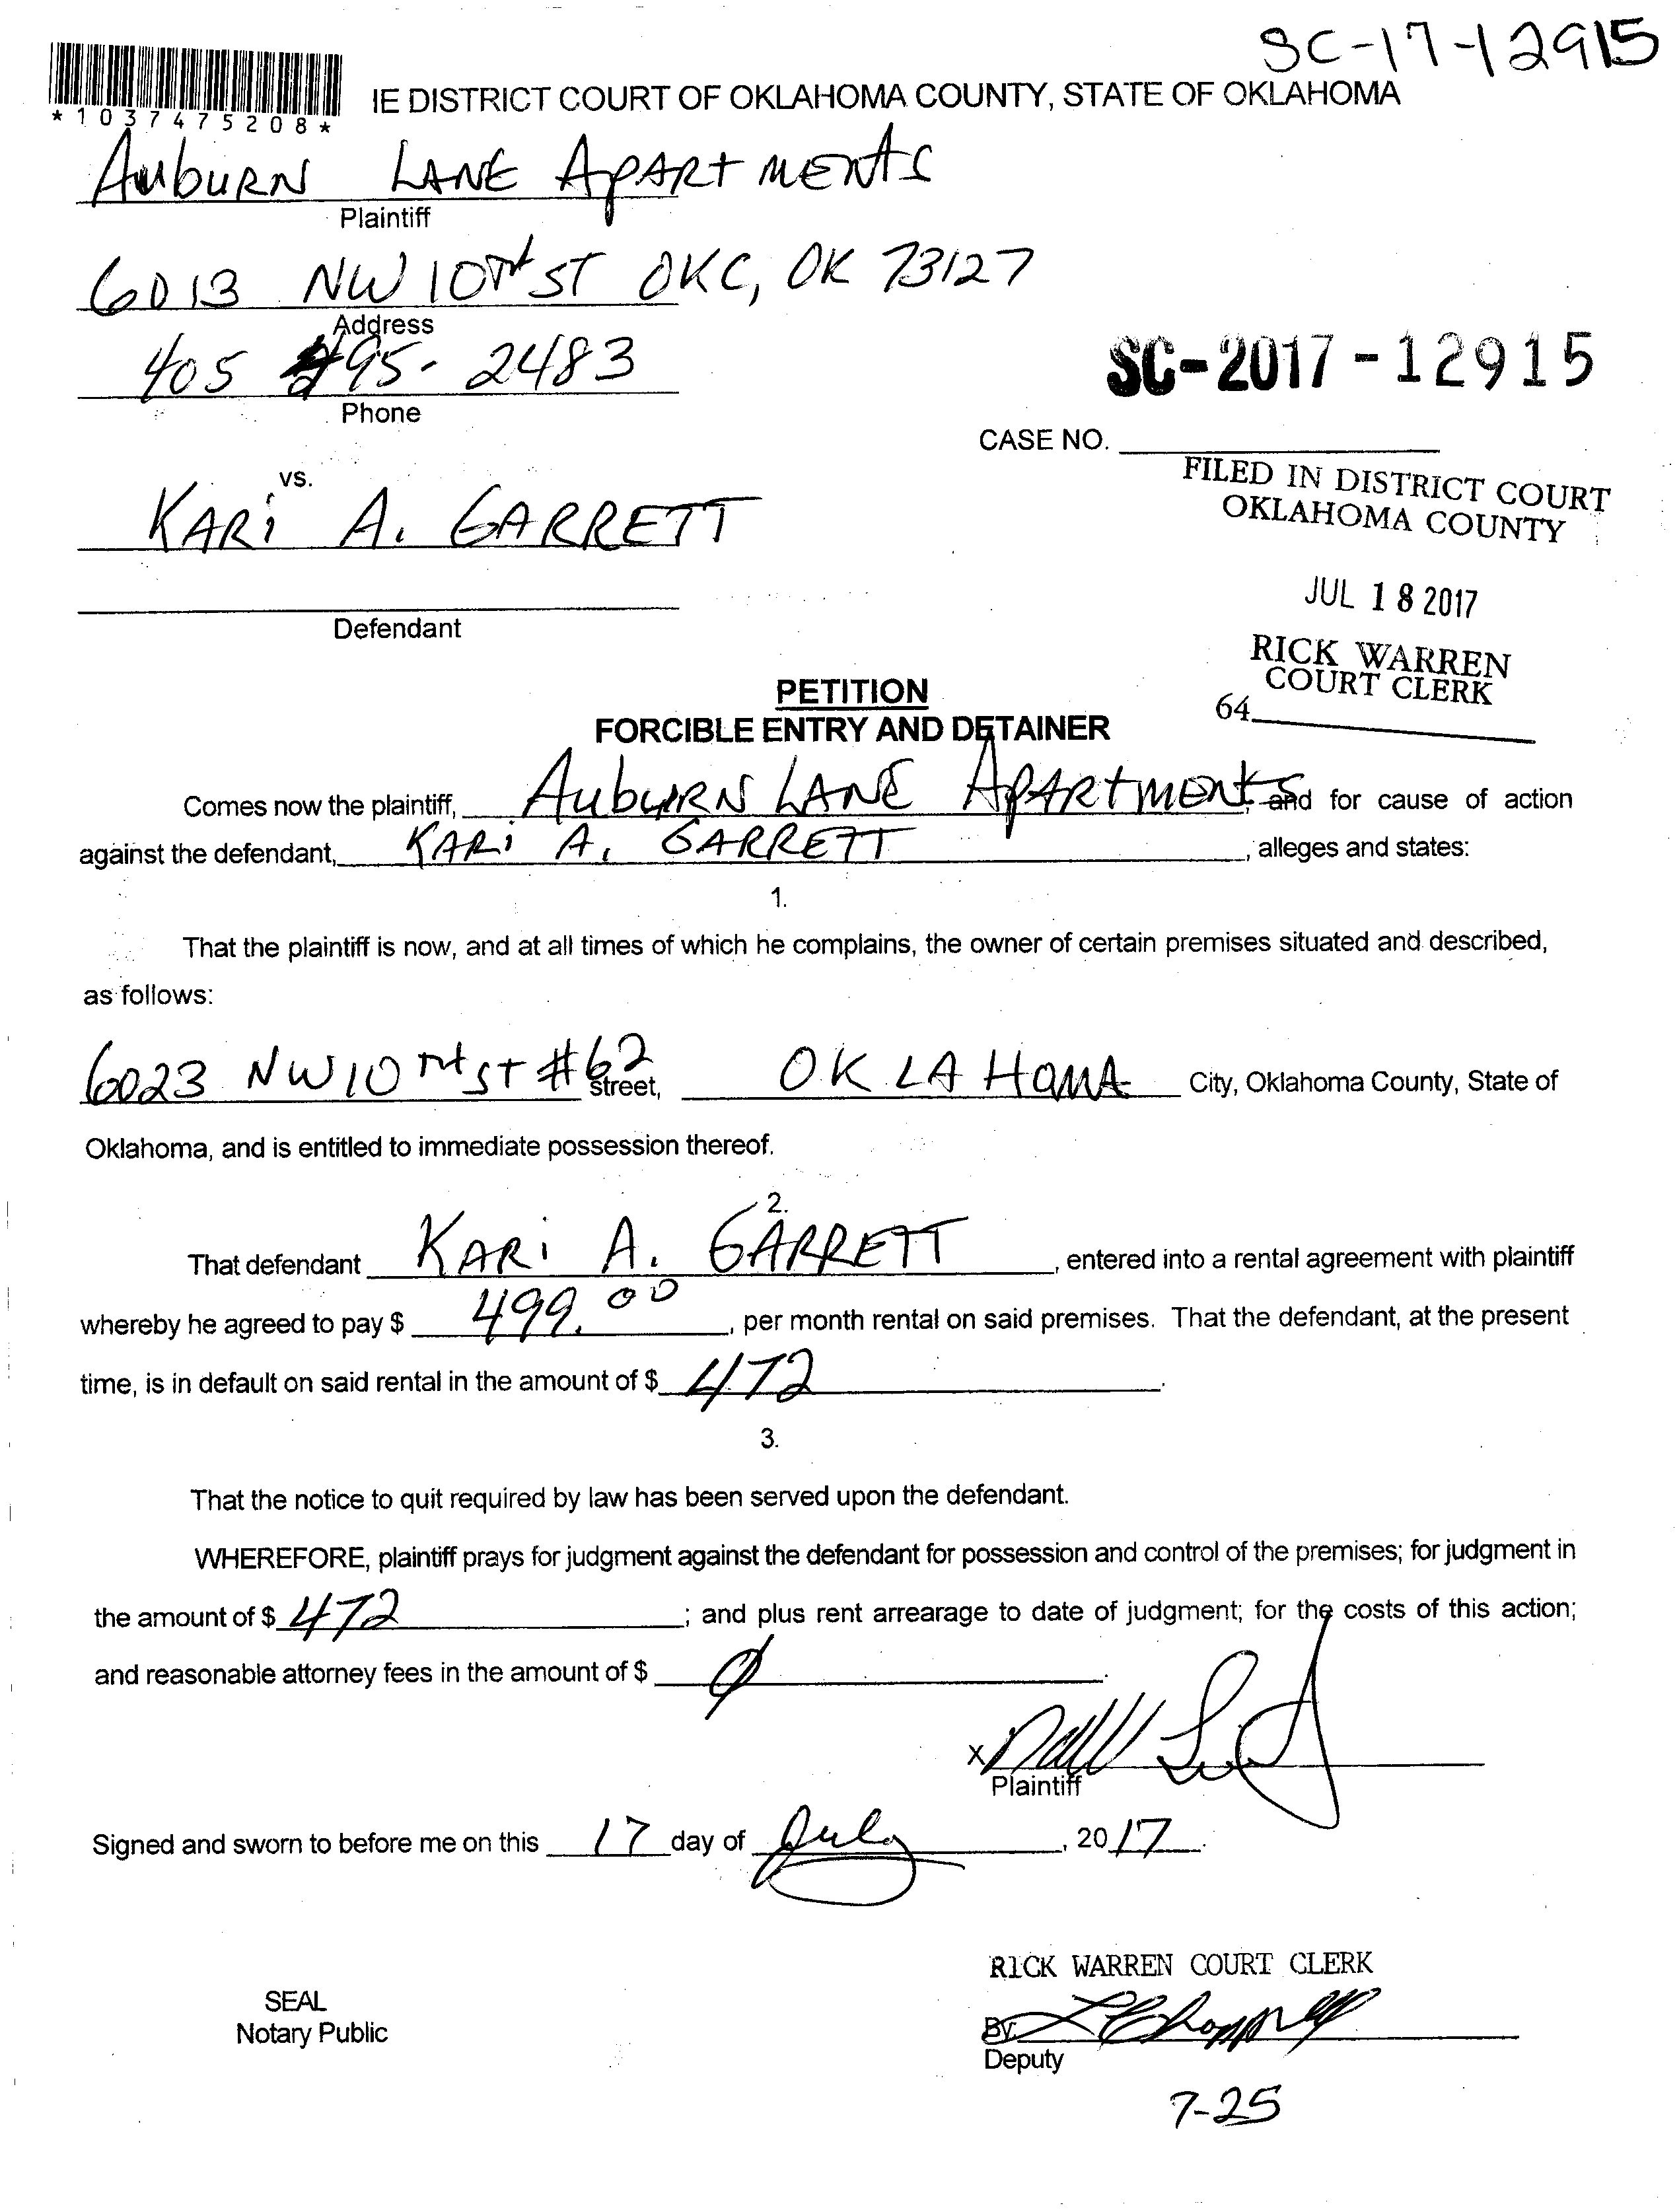 SC-17-12915
IE DISTRICT COURT OF OKLAHOMA COUNTY, STATE OF OKLAHOMA
*1037475208*
AuburN LANE APARTMENTS
Plaintiff
6013 NW 10TH ST OKC, OK 73127
Address
405 495-2483
Phone
SC-2017-12915
CASE NO.
vs.
FILED IN DISTRICT COURT
OKLAHOMA COUNTY
KARi A. GARRETT
JUL 18 2017
Defendant
RICK WARREN
COURT CLERK
64
PETITION
FORCIBLE ENTRY AND DETAINER
Comes now the plaintiff, AubuRN LANE APARTMENTS, and for cause of action
against the defendant, KARi A. GARRETT, alleges and states:
1.
That the plaintiff is now, and at all times of which he complains, the owner of certain premises situated and described,
as follows:
6023 NW 10TH ST #62 street, OKLAHOMA City, Oklahoma County, State of
Oklahoma, and is entitled to immediate possession thereof.
2.
That defendant KARi A. GARRETT, entered into a rental agreement with plaintiff
whereby he agreed to pay $ 499.00, per month rental on said premises. That the defendant, at the present
time, is in default on said rental in the amount of $ 472.
3.
That the notice to quit required by law has been served upon the defendant.
WHEREFORE, plaintiff prays for judgment against the defendant for possession and control of the premises; for judgment in
the amount of $ 472; and plus rent arrearage to date of judgment; for the costs of this action;
and reasonable attorney fees in the amount of $ ∅.
X
Plaintiff
Signed and sworn to before me on this 17 day of July, 2017.
RICK WARREN COURT CLERK
SEAL
Notary Public
By:
Deputy
7-25